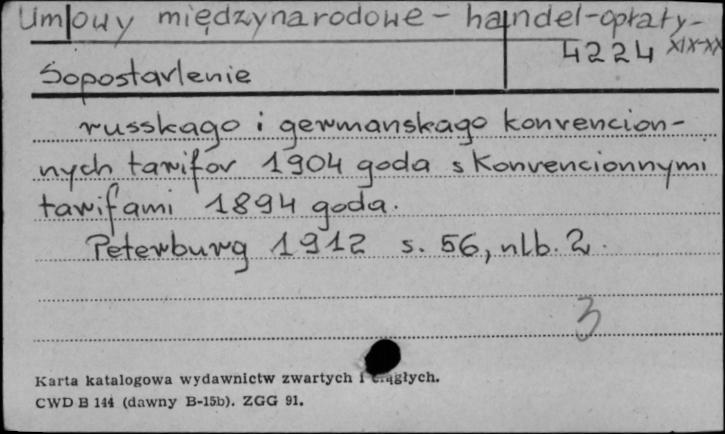 Umowy międzynarodowe - handel - opłaty -
4224 XIX-XX
Sopostavlenie
russkago i germanskago konvencion-
nych tarifov 1904 goda s konvencionnymi
tarifami 1894 goda.
Peterburg 1912 s. 56, nlb. 2.
3
Karta katalogowa wydawnictw zwartych i ciągłych.
CWD B 144 (dawny B-15b). ZGG 91.